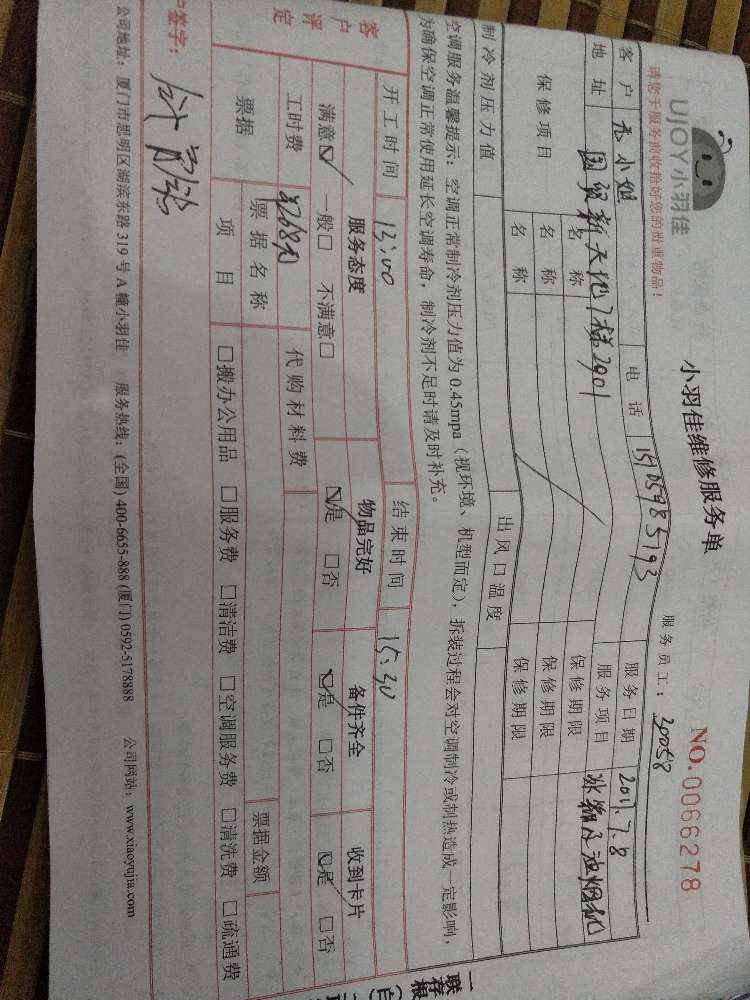 UJOY小羽佳
请您于服务前收拾好您的贵重物品!
小羽佳维修服务单
NO. 0066278
服务员工: 30058
客户 小姐 电话 15105985793 服务日期 2017.7.8
地址 国贸新天地7梯2901 服务项目 冰箱及油烟机
保修项目 名称 保修期限
名称 保修期限
名称 保修期限
制冷剂压力值 出风口温度
空调服务温馨提示: 空调正常制冷剂压力值为 0.45mpa (视环境、机型而定), 拆装过程会对空调制冷或制热造成一定影响,
为确保空调正常使用延长空调寿命, 制冷剂不足时请及时补充。
开工时间 12:00 结束时间 15:30
客户评定 服务态度 物品完好 备件齐全 收到卡片
满意☑ 一般□ 不满意□ ☑是 □否 ☑是 □否 ☑是 □否
工时费 368元 代购材料费
票据 票据名称 票据金额
项目 □搬办公用品 □服务费 □清洁费 □空调服务费 □清洗费 □疏通费
户签字:
公司地址: 厦门市思明区湖滨东路 319 号 A 幢小羽佳 服务热线: (全国) 400-6655-888 (厦门) 0592-5178888 公司网站: www.xiaoyujia.com
一联存根